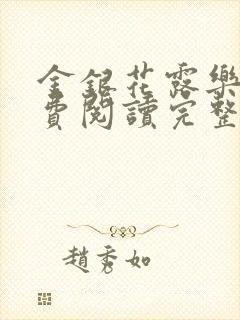 金銀花露樂
費閱讀完整
趙秀如